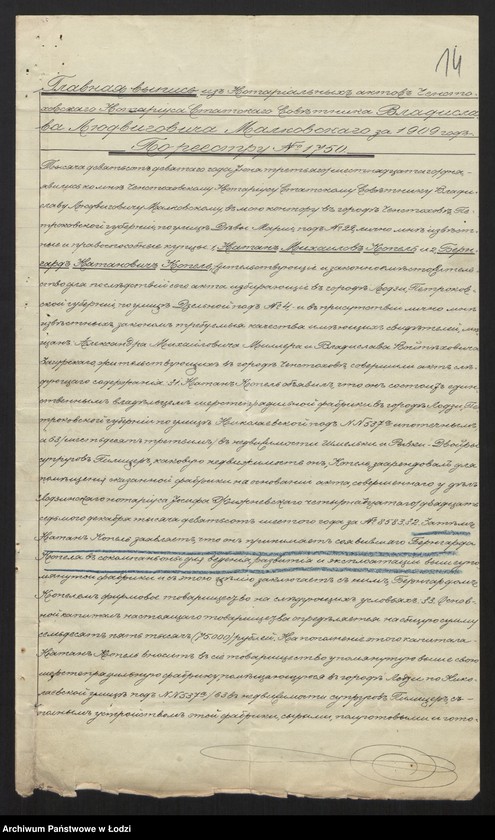 14
Главная выпись изъ Нотаріальныхъ актовъ Ченсто-
ховскаго Нотаріуса Статскаго Совѣтника Владисла-
ва Людвиговича Малковскаго за 1909 годъ.
По реестру № 1750.
Тысяча девятьсотъ девятаго года, Іюня третьяго шестнадцатаго дня, я-
вились ко мнѣ Ченстоховскому Нотаріусу Статскому Совѣтнику Влади-
славу Людвиговичу Малковскому, въ мою контору въ городѣ Ченстоховѣ, Пе-
троковской губерніи, по улицѣ Дѣвы Маріи, подъ № 22, лично мнѣ извѣст-
ные и правоспособные купцы: 1, Натанъ Михайловъ Копель и 2, Берн-
гардъ Натановичъ Копель, жительствующіе и законное мѣстожительс-
тво для послѣдствій сего акта избирающіе въ городѣ Лодзи, Петроков-
ской губерніи, по улицѣ Дзельной подъ № 4 и въ присутствіи лично мнѣ
извѣстныхъ, закономъ требуемыя качества имѣющихъ свидѣтелей, мѣ-
щанъ: Александра Михайловича Миллера и Владислава Войтѣховича
жительствующихъ въ городѣ Ченстоховѣ совершили актъ слѣ-
дующаго содержанія: §1. Натанъ Копель объявилъ, что онъ состоитъ един-
ственнымъ владѣльцемъ шерстопрядильной фабрики въ городѣ Лодзи, Пе-
троковской губерніи по улицѣ Николаевской подъ №№ 557ª ипотечнымъ,
а 68/шестьдесятъ третьимъ/, въ недвижимости Шмельки и Рывки-Двойры
супруговъ Пилицеръ, каковую недвижимость онъ, Копель заарендовалъ для
помѣщенія сказанной фабрики на основаніи акта, совершеннаго у дѣлъ
Лодзинскаго нотаріуса Іосифа четырнадцатаго/двадцать
седьмого декабря тысяча девятьсотъ шестого года за № 8583. §2. Затѣмъ
Натанъ Копель заявляетъ, что онъ принимаетъ сея своего Бернгарда
Копеля въ сокомпаньоны для веденія, развитія и эксплоатаціи вышеупо-
мянутой фабрики и съ этою цѣлью заключаетъ съ нимъ, Бернгардомъ
Копелемъ фирмовое товарищество на слѣдующихъ условіяхъ: §3. Основ-
ной капиталъ настоящаго товарищества опредѣляется на общую сумму
семьдесятъ пять тысячъ /75000/ рублей. На пополненіе этого капитала
Натанъ Копель вноситъ въ сіе товарищество упомянутую выше свою
шерстопрядильную фабрику, помѣщающуюся въ городѣ Лодзи по Нико-
лаевской улицѣ подъ №№ 557ª/68 въ недвижимости супруговъ Пилицеръ, съ
полнымъ устройствомъ этой фабрики, сырыми, полуготовыми и гото-
Archiwum Państwowe w Łodzi